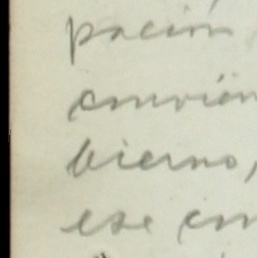 pación
convien
bierno,
ese con